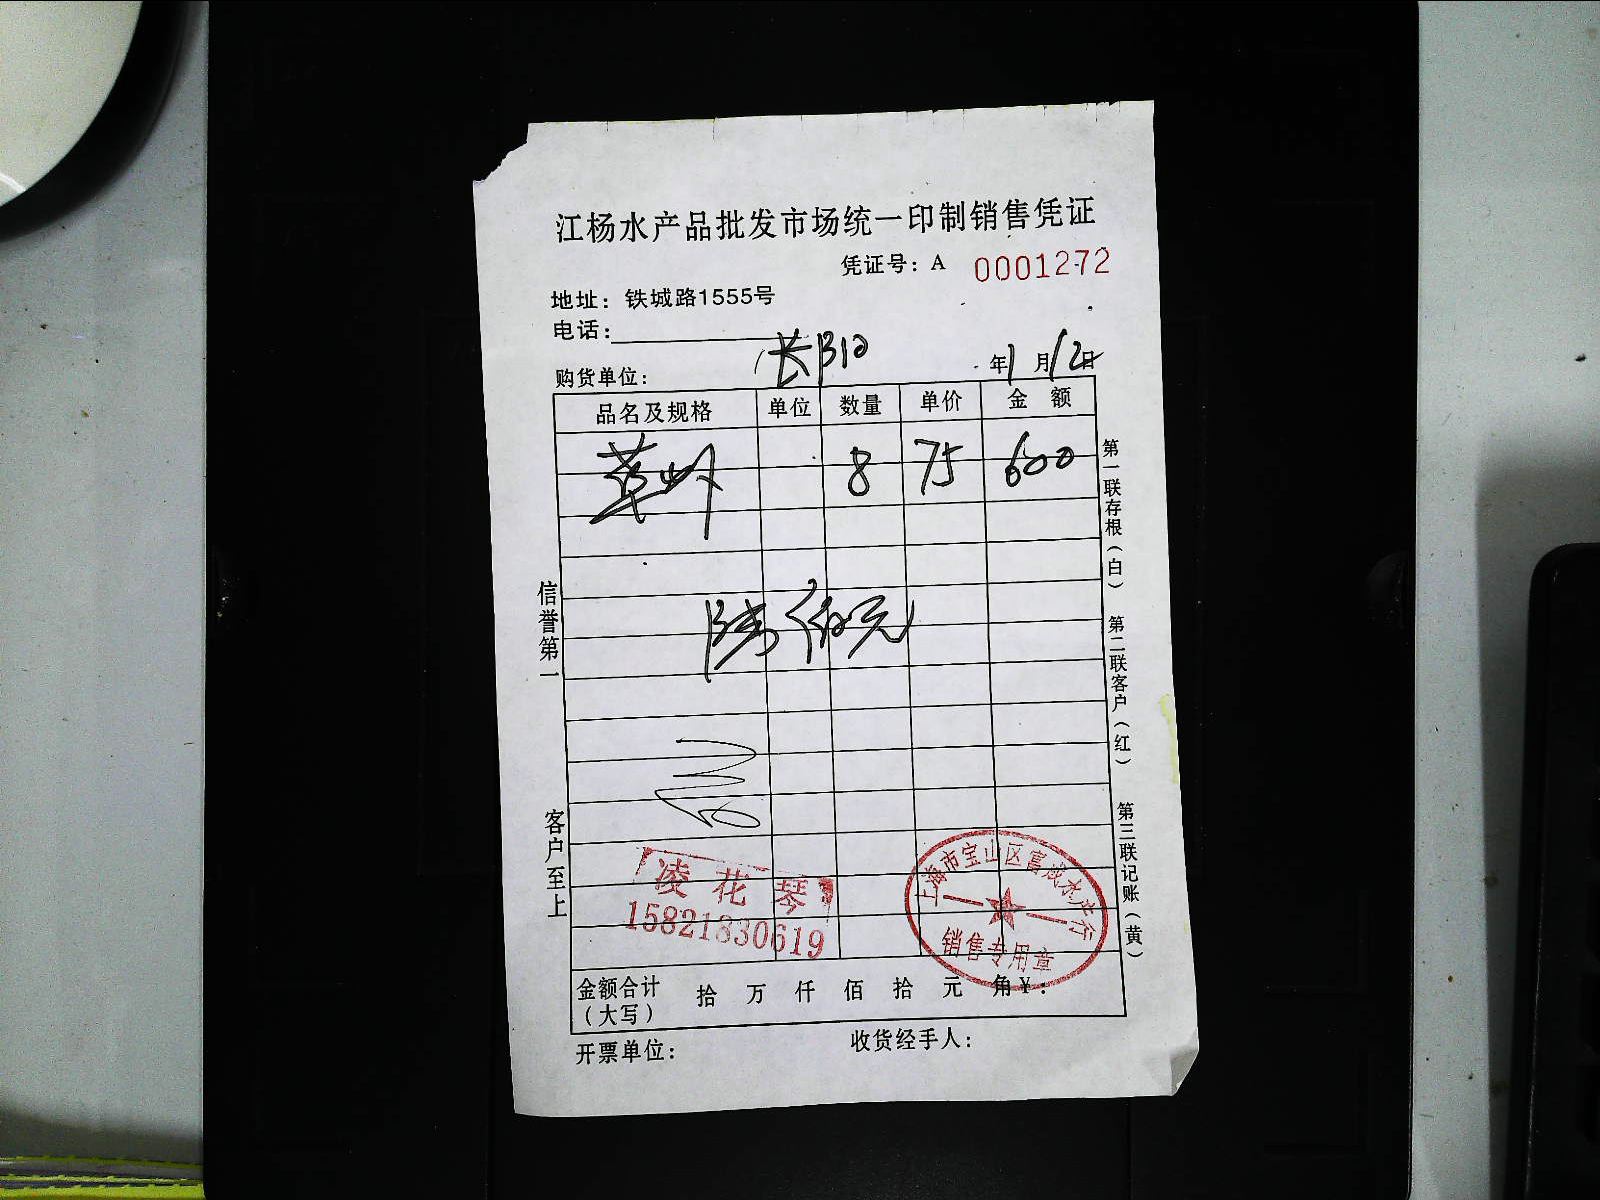 江杨水产品批发市场统一印制销售凭证
凭证号：A 0001272
地址：铁城路1555号
电话：
购货单位： 长阳 年1月12日
品名及规格 单位 数量 单价 金额
草虾 8 75 600
陆佰元
凌花琴
15821830619
上海市宝山区富成水产行
销售专用章
金额合计（大写） 拾 万 仟 佰 拾 元 角 ¥：
开票单位： 收货经手人：
信誉第一
客户至上
第一联存根（白）
第二联客户（红）
第三联记账（黄）